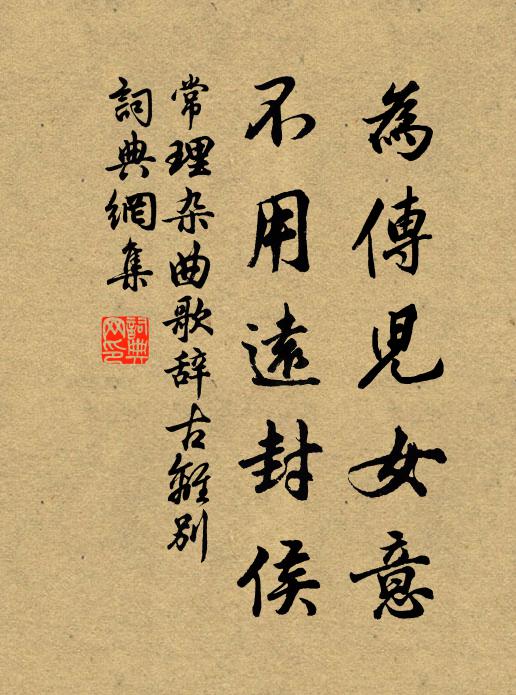 為傳兒女意
不用遠封侯
常理杂曲歌辞古離别
詞典網集
詞典
网印